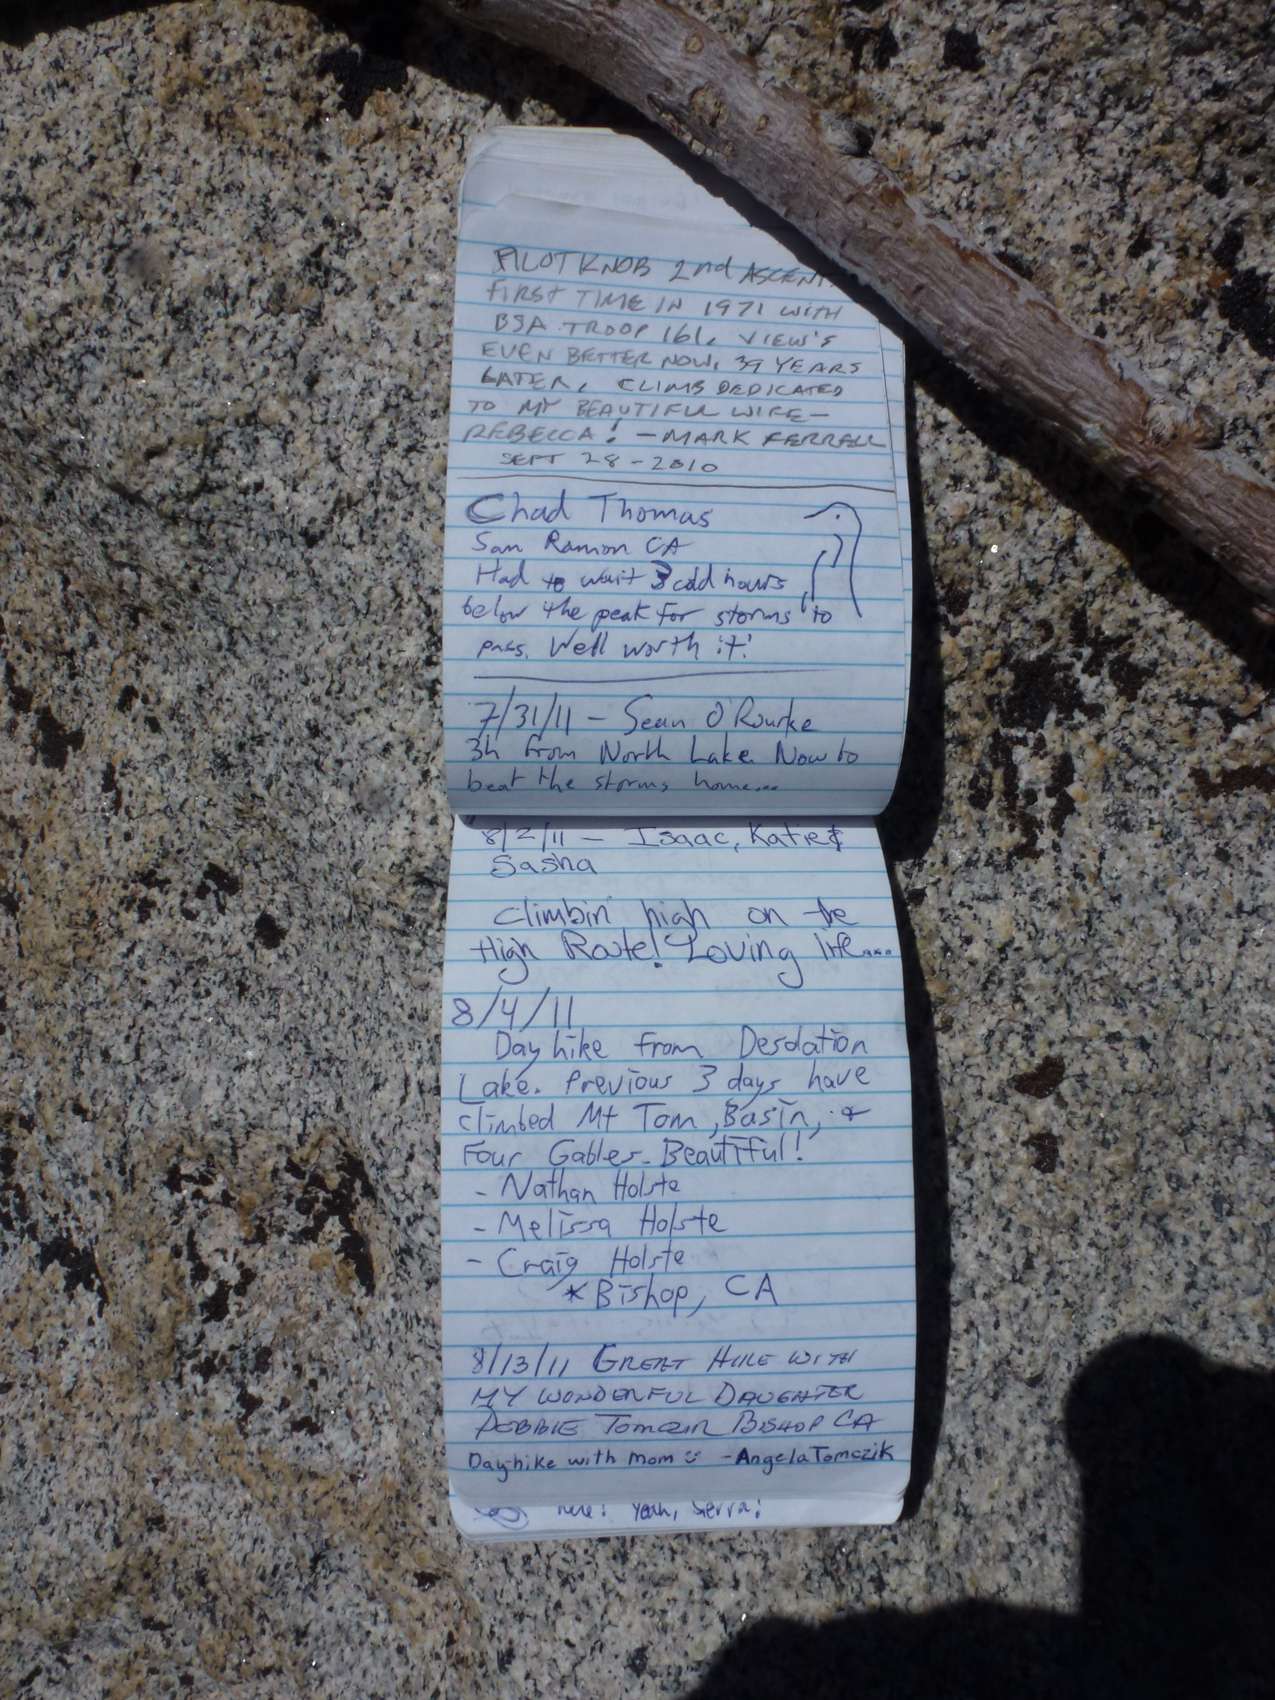 PILOT KNOB 2nd ASCENT.
FIRST TIME IN 1971 WITH
BSA TROOP 161. VIEW'S
EVEN BETTER NOW, 39 YEARS
LATER. CLIMB DEDICATED
TO MY BEAUTIFUL WIFE-
REBECCA! - MARK FERRELL
SEPT 28-2010
Chad Thomas
San Ramon CA
Had to wait 3 cold hours
below the peak for storms to
pass. Well worth it!
7/31/11 - Sean O'Rourke
3h from North Lake. Now to
beat the storms home...
8/2/11 - Isaac, Katie &
Sasha
Climbin' high on the
High Route! Loving life....
8/4/11
Day hike from Desolation
Lake. Previous 3 days have
climbed Mt Tom, Basin, &
Four Gables. Beautiful!
- Nathan Holste
- Melissa Holste
- Craig Holste
* Bishop, CA
8/13/11 GREAT HIKE WITH
MY WONDERFUL DAUGHTER
DEBBIE TOMCZIK BISHOP CA
Day-hike with mom :) - Angela Tomczik
here! Yeah, Sierra!